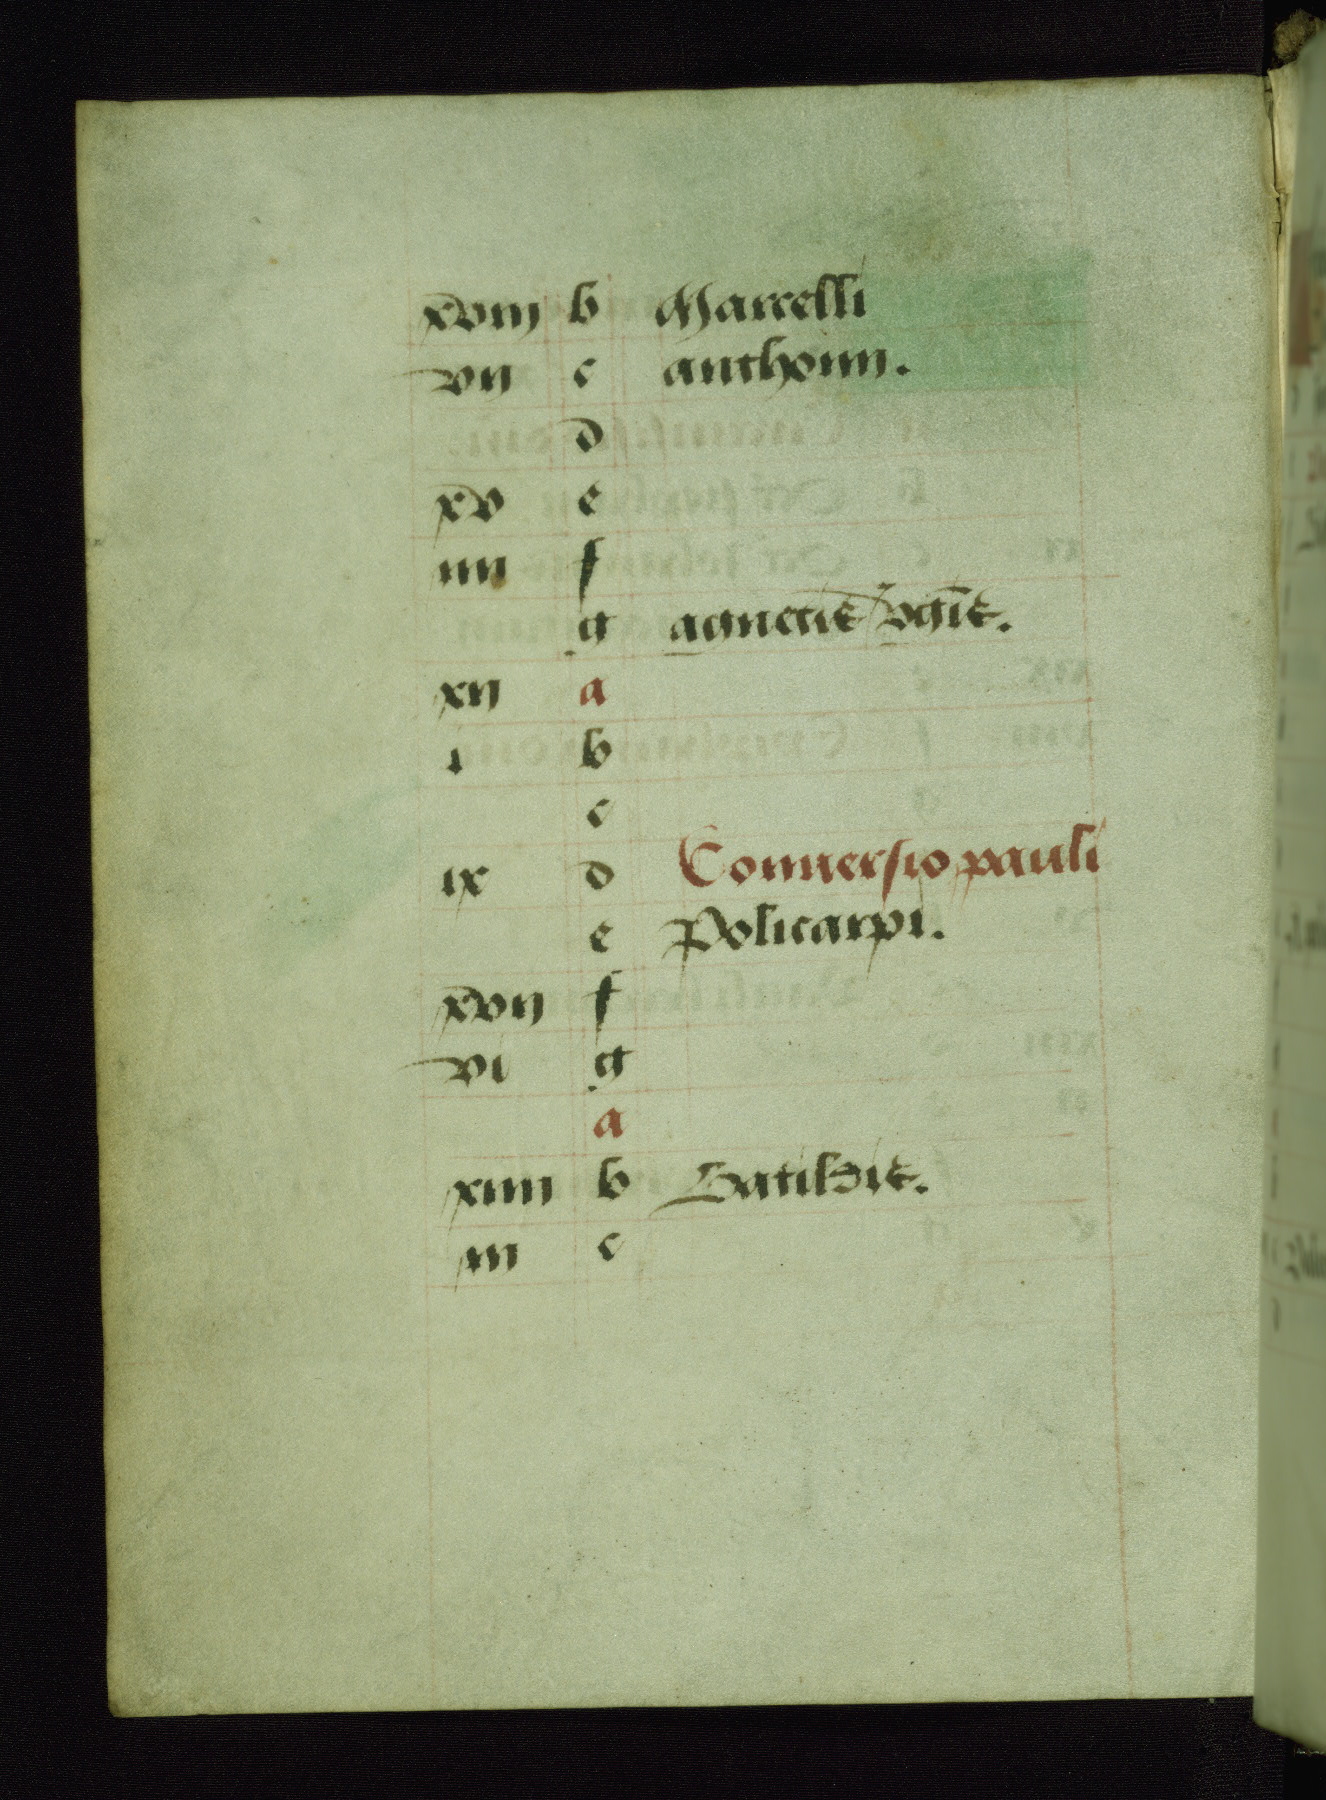 xviij b Marcelli
vij c anthonii.
d
xv e
iiii f
g agnetis v̄gīs.
xij a
i b
c
ix d Conuersio pauli
e Policarpi.
xvij f
vi g
a
xiiii b Batildis.
iii c